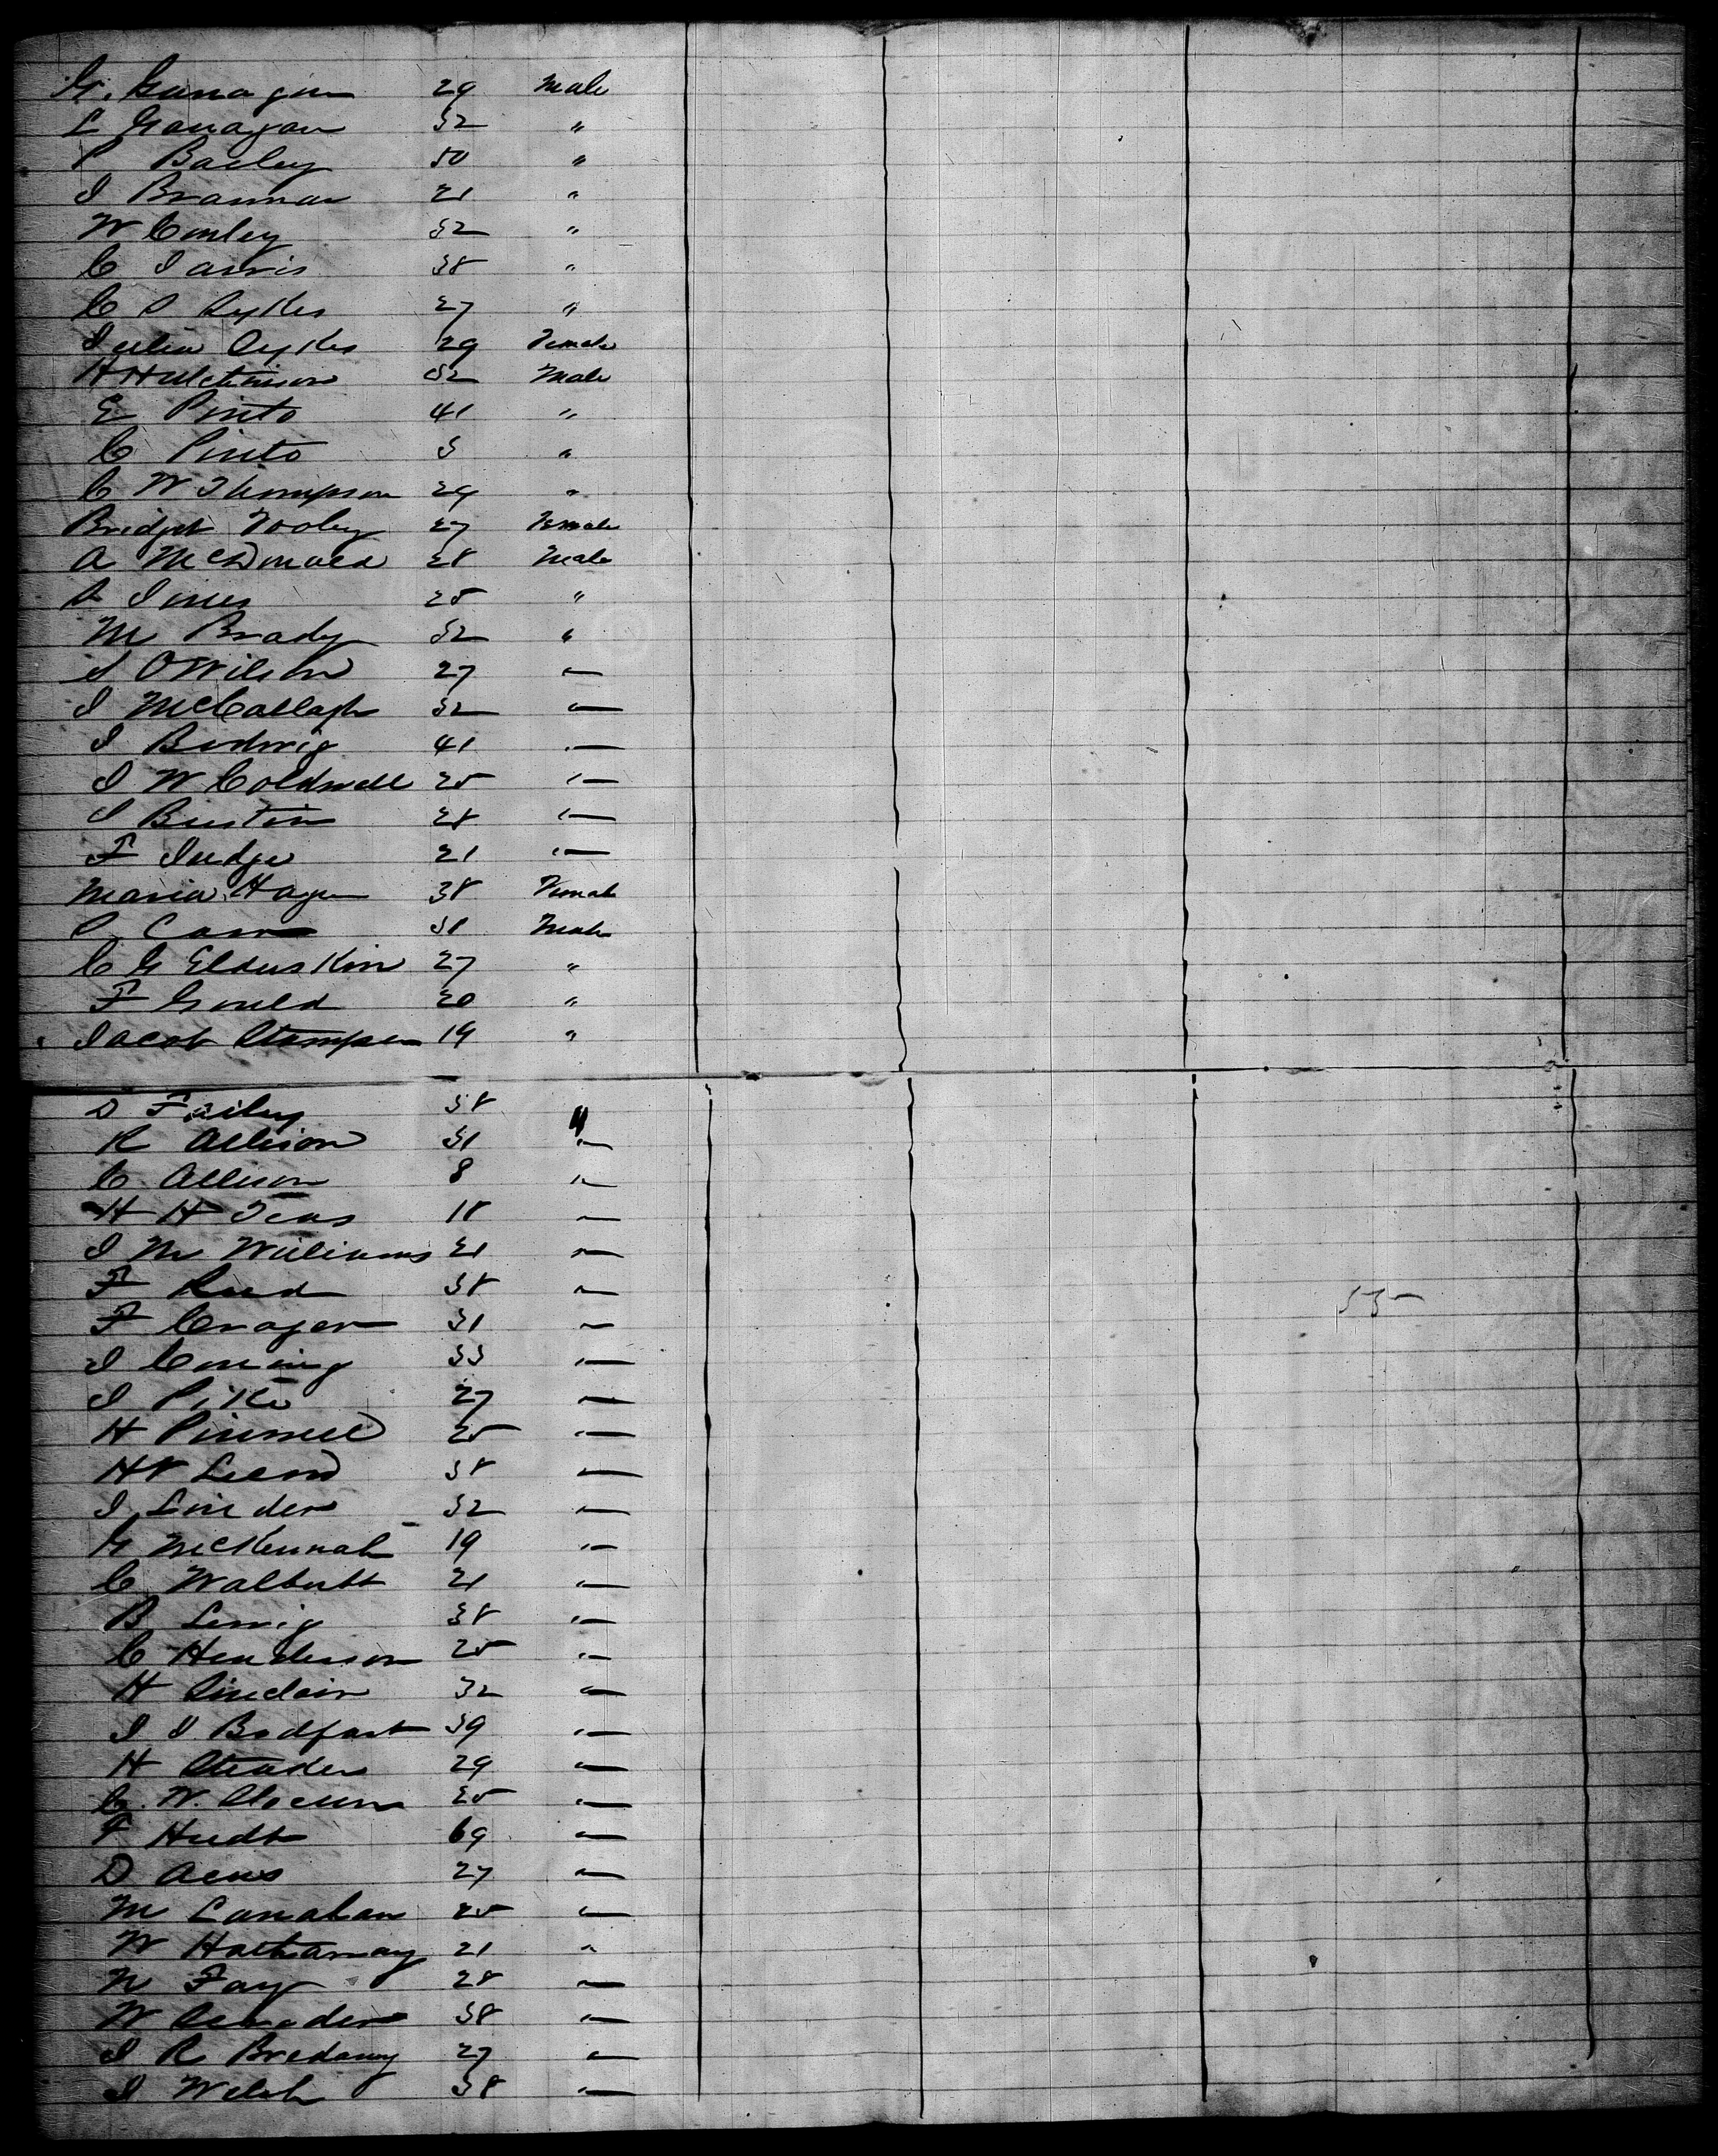 G. Ganagin 29 Male
L Ganagan 32 "
P Bailey 50 "
J Brannan 21 "
W Conley 32 "
C Jarvis 38 "
C S Sykes 27 "
Julia Sykes 29 Female
H Hutchinson 32 Male
E Pinto 41 "
C Pinto 3 "
C W Thompson 29 "
Bridget Tooley 27 Female
A McDonald 28 Male
S Jones 25 "
M Brady 32 "
S O Wilson 27 "
J McCallagh 32 "
J Bodwig 41 "
J W Coldwell 25 "
J Bustin 28 "
F Judge 21 "
Maria Hagen 38 Female
P Carr 31 Male
C G Elderskin 27 "
F Gould 20 "
Jacob Stamper 19 "
S Failey 38 "
R Allison 31 "
C Allison 8 "
H H Teas 18 "
J M Williams 21 "
F Reed 38 "
F Croger 31 "
J Coning 33 "
J Pike 27 "
H Pinnell 25 "
H 38 "
J Linder 32 "
G McKennah 19 "
C Walbutt 21 "
B 38 "
C Henderson 25 "
H Sinclair 32 "
J J Bodfart 39 "
H Steader 29 "
C. W. Slocum 25 "
F Hudt 69 "
D 27 "
M Lanahan 25 "
W Hathaway 21 "
N Fay 28 "
W 38 "
J R Bredany 27 "
J Welsh 38 "
55